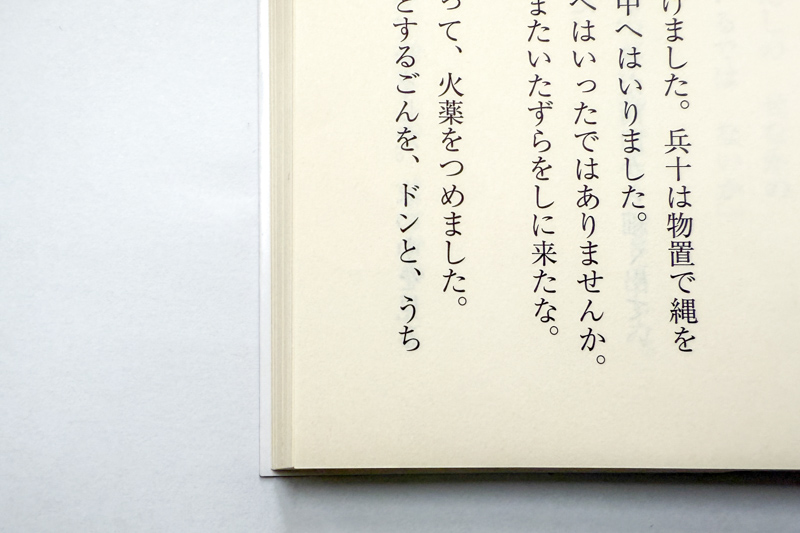 けました。兵十は物置で縄を
中へはいりました。
へはいったではありませんか。
またいたずらをしに来たな。
って、火薬をつめました。
とするごんを、ドンと、うち